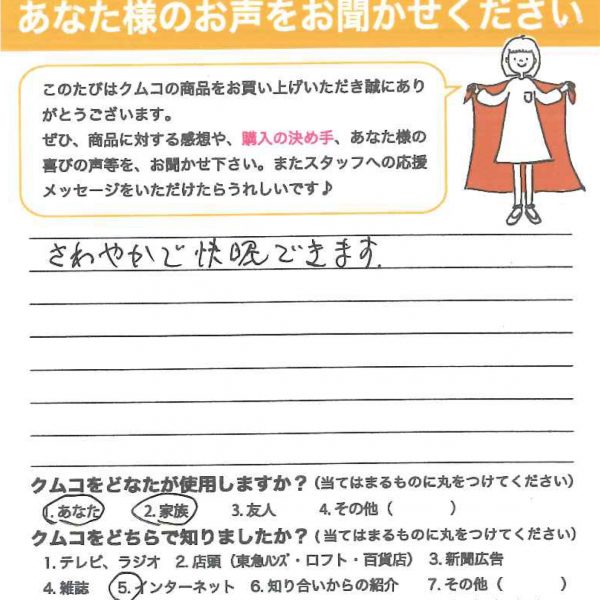 あなた様のお声をお聞かせください
このたびはクムコの商品をお買い上げいただき誠にあり
がとうございます。
ぜひ、商品に対する感想や、購入の決め手、あなた様の
喜びの声等を、お聞かせ下さい。またスタッフへの応援
メッセージをいただけたらうれしいです♪
さわやかで快眠できます.
クムコをどなたが使用しますか？(当てはまるものに丸をつけてください)
1. あなた 2. 家族 3. 友人 4. その他（ ）
クムコをどちらで知りましたか？(当てはまるものに丸をつけてください)
1. テレビ、ラジオ 2. 店頭（東急ﾊﾝｽﾞ・ロフト・百貨店） 3. 新聞広告
4. 雑誌 5. インターネット 6. 知り合いからの紹介 7. その他（ ）